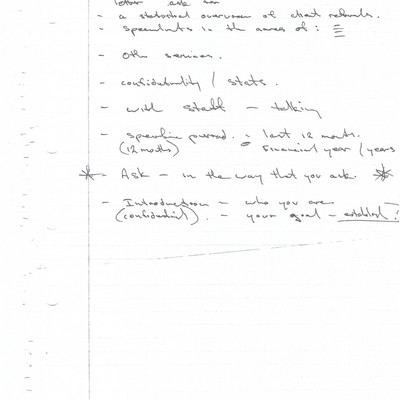 letter ask for
- a statistical overview of client referrals.
- specialists in the areas of :
- Other services.
- confidentiality / stats.
- with staff - talking
- specific period. : - last 12 months.
(12 months) Financial year / years
* - Ask - in the way that you ask. *
- Introduction - who you are
(confidential). - your goal - establish